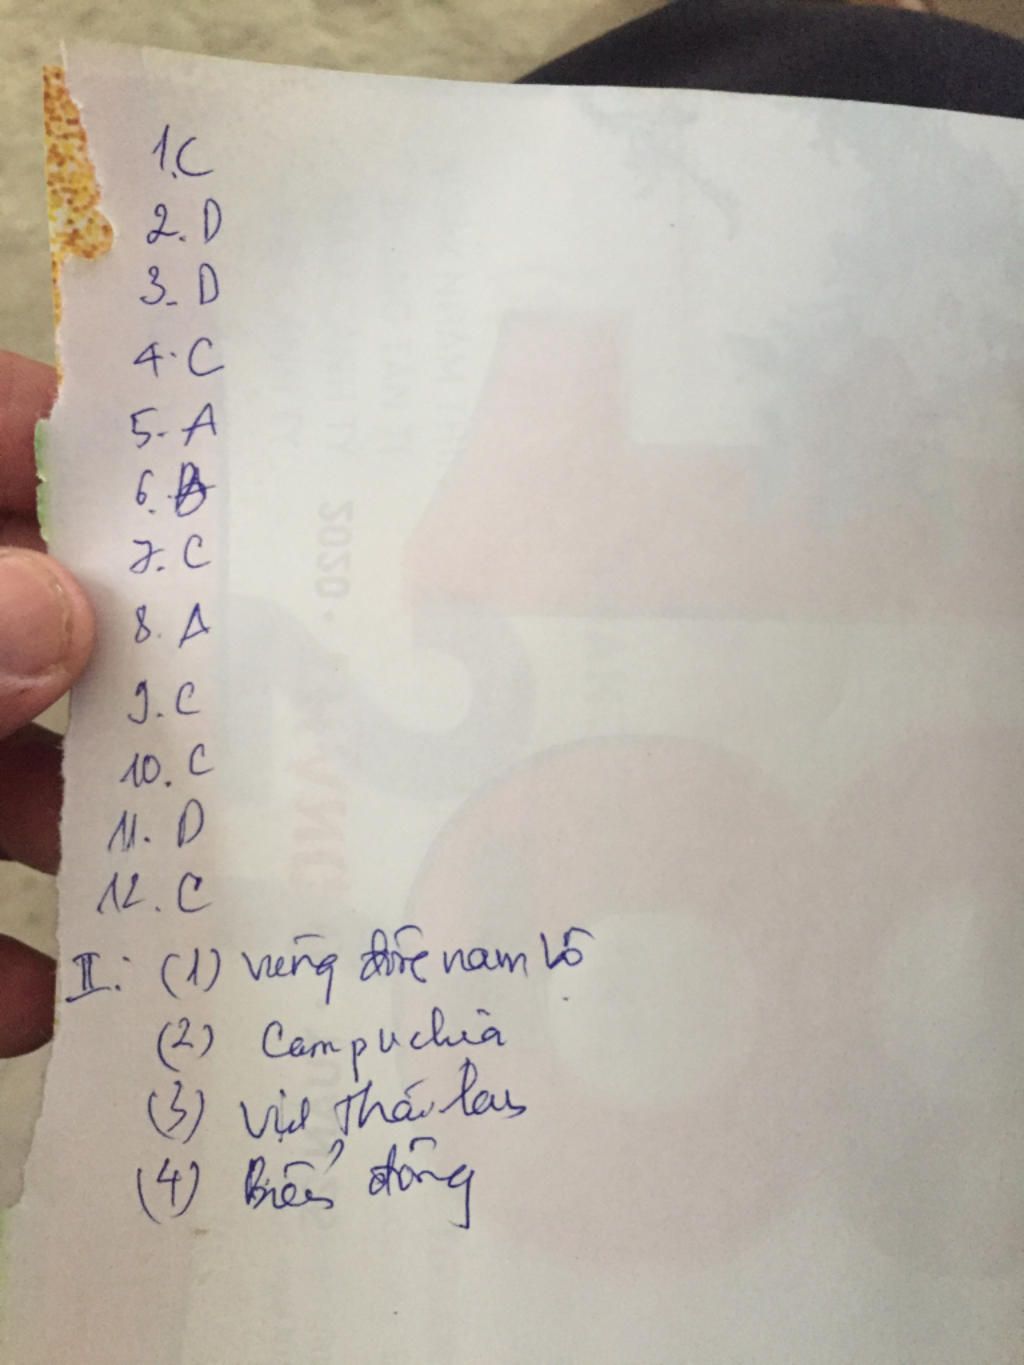 1.C
2. D
3. D
4. C
5. A
6. B
7. C
8. A
9. C
10. C
11. D
12. C
II: (1) vùng đông nam bộ
(2) Campuchia
(3) Vịnh Thái lan
(4) Biển đông
2020